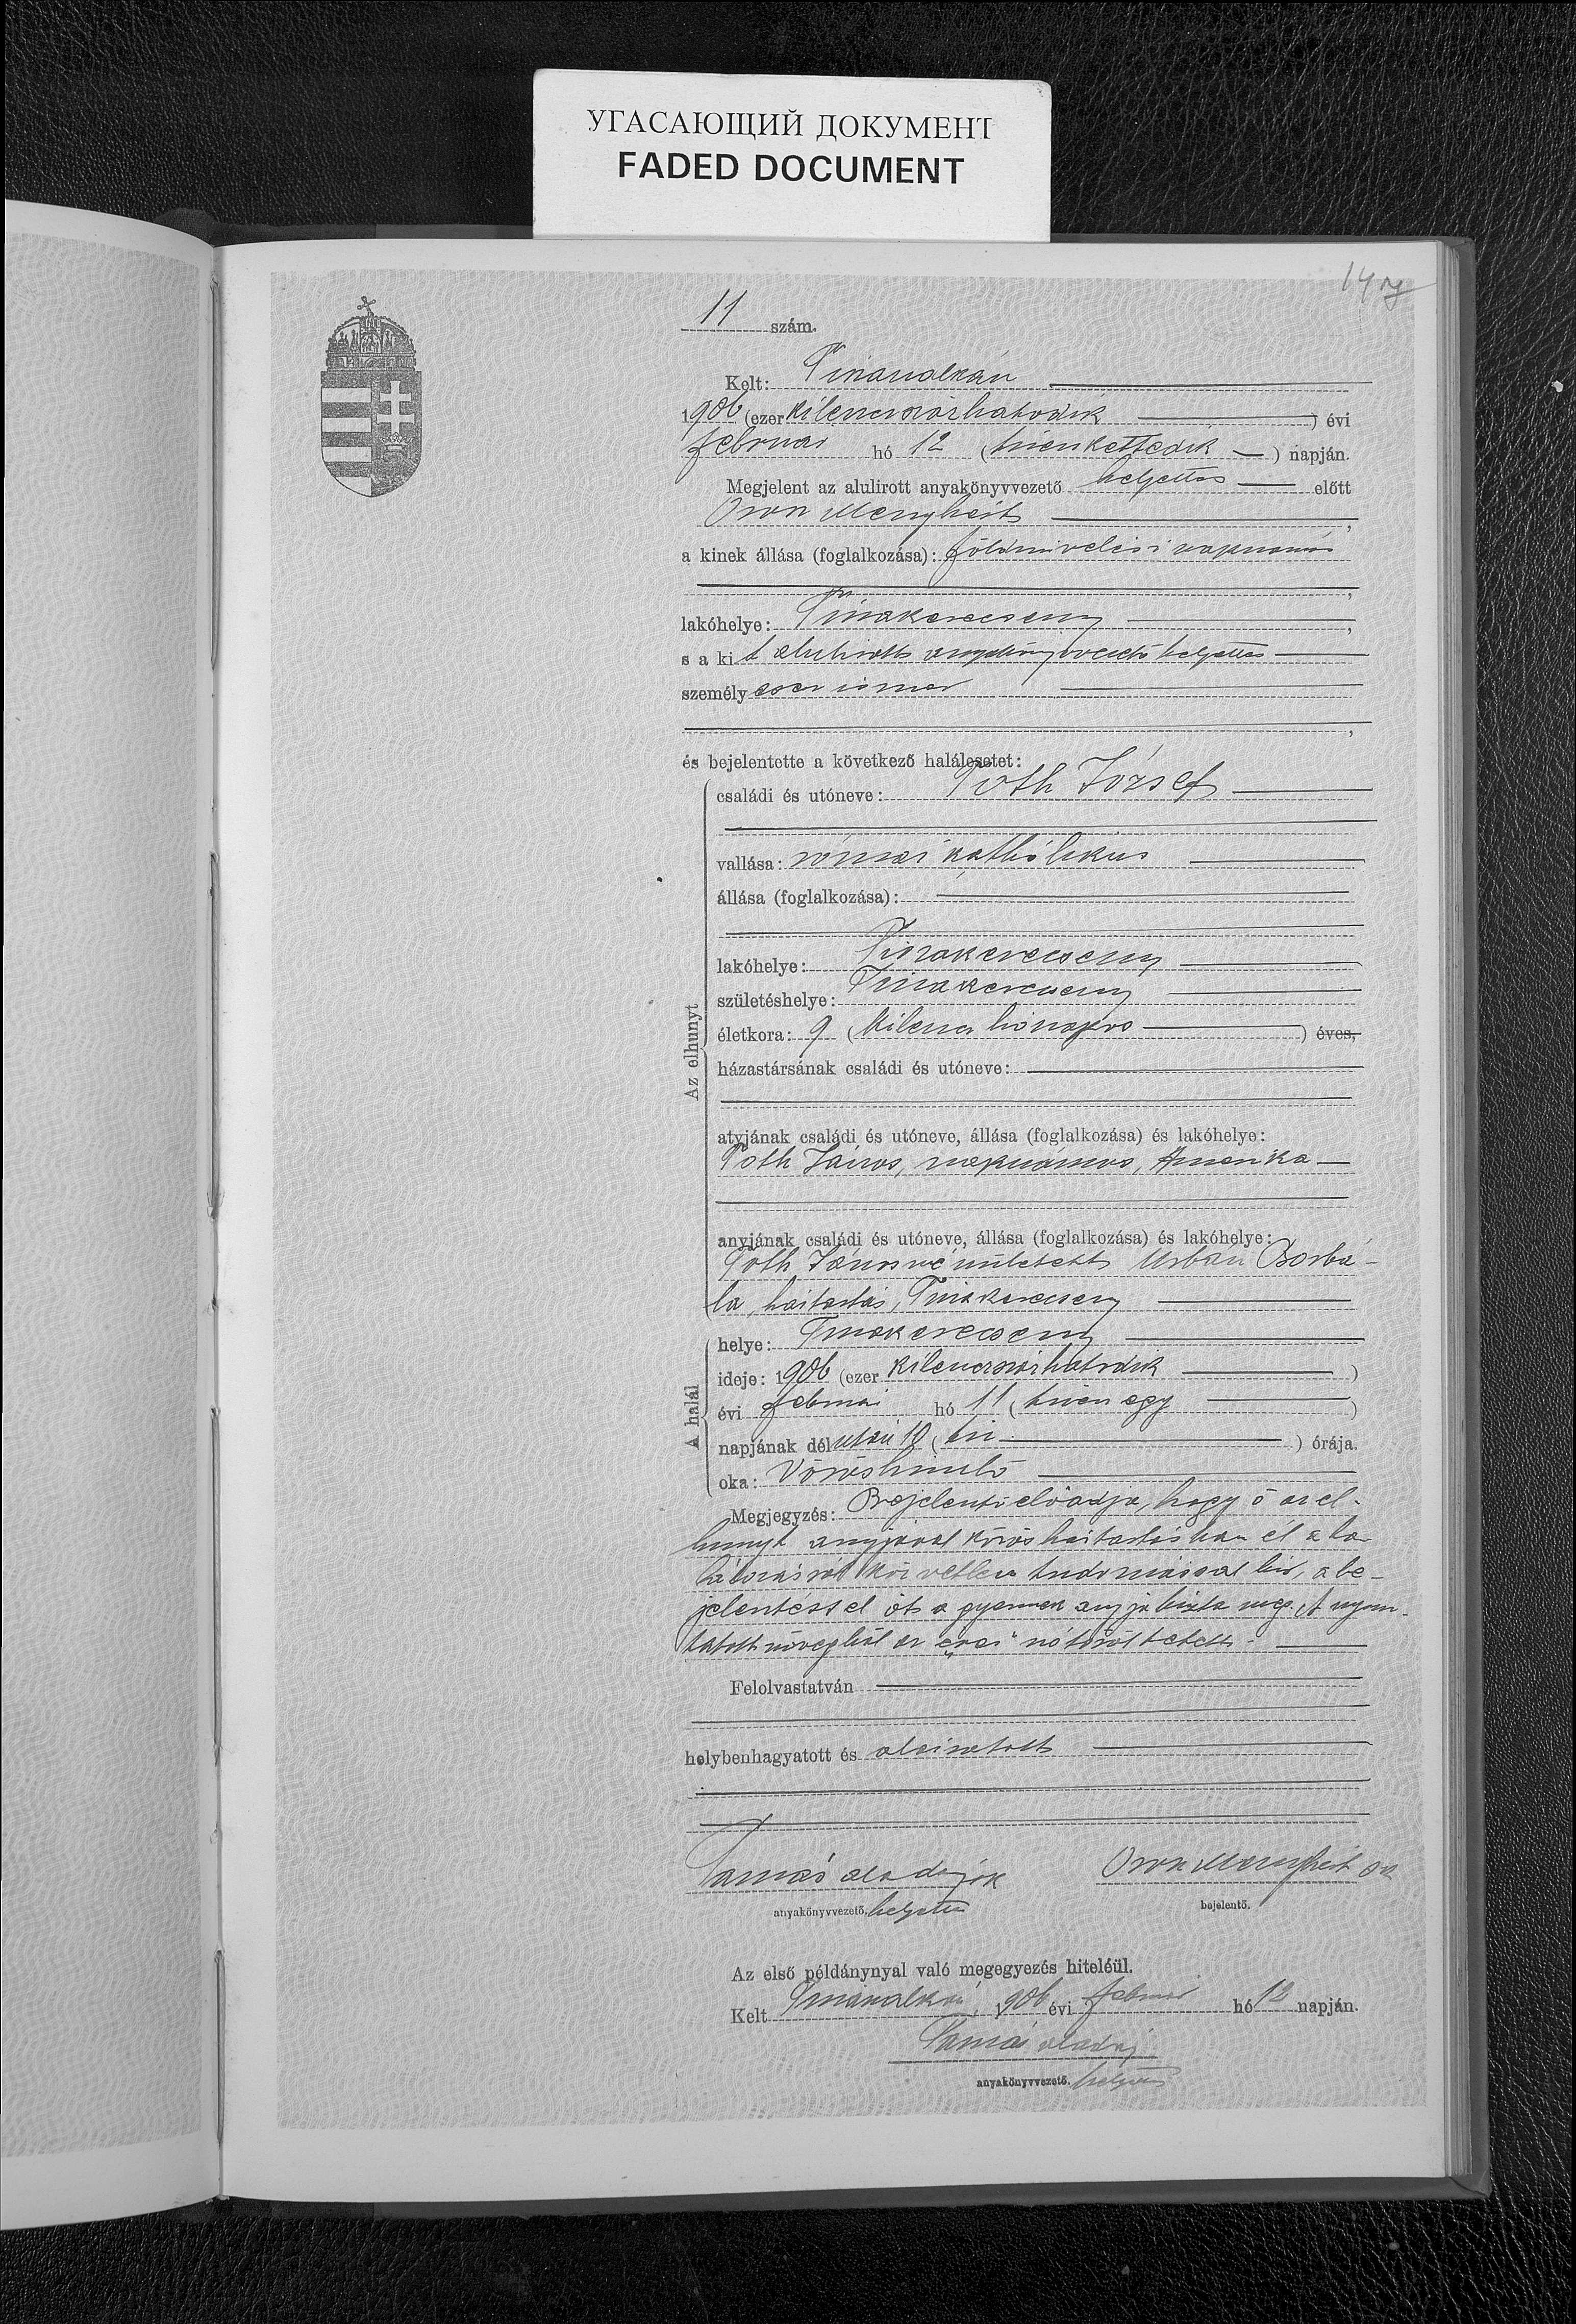 УГАСАЮЩИЙ ДОКУМЕНТ
FADED DOCUMENT
11 szám.
Kelt:
1906 (ezer kilencszázhatodik) évi
február hó 12 (tizenkettedik) napján.
Megjelent az alulirott anyakönyvvezető helyettes előtt
Menyhért,
a kinek állása (foglalkozása): földmivelési napszámos,
lakóhelye: Tiszakerecseny,
s a kit alulirott anyakönyvvezető helyettes
személyesen ismer,
és bejelentette a következő halálesetet:
Az elhunyt
családi és utóneve: Toth József
vallása: római katholikus
állása (foglalkozása):
lakóhelye: Tiszakerecseny
születéshelye: Tiszakerecseny
életkora: 9 (kilenc hónapos) éves,
házastársának családi és utóneve:
atyjának családi és utóneve, állása (foglalkozása) és lakóhelye:
Toth János, napszámos, Amerika
anyjának családi és utóneve, állása (foglalkozása) és lakóhelye:
Toth Jánosné született Urbán Borbá-
la, háztartás, Tiszakerecseny
A halál
helye: Tiszakerecseny
ideje: 1906 (ezer kilencszázhatodik)
évi február hó 11 (tizenegy)
napjának délután 10 (tíz) órája.
oka: Vörösheveny
Megjegyzés: Bejelentő előadja, hogy ő az el-
hunyt anyjával közös háztartásban él a ha-
lálozásról közvetlen tudomással bír, a be-
jelentéssel őt a gyermek anyja bízta meg. A nyom-
tatott szövegből az „éves" szó töröltetett.
Felolvastatván
helybenhagyatott és aláiratott
Tamás Aladár sk
Menyhért sk
anyakönyvvezető. helyettes
bejelentő.
Az első példánynyal való megegyezés hiteléül.
Kelt 1906 évi február hó 12 napján.
Tamás Aladár
anyakönyvvezető. helyettes